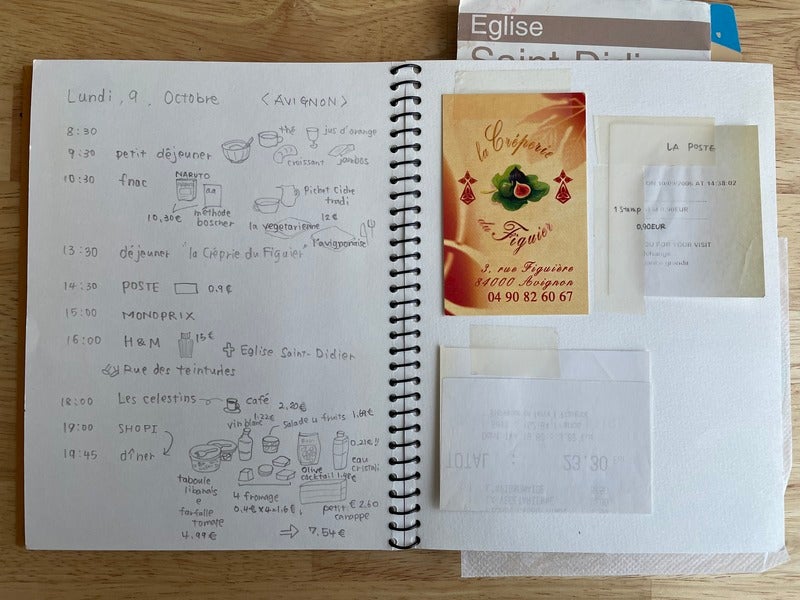 Lundi, 9, Octobre <AVIGNON>
8:30
thé jus d'orange
9:30 petit déjeuner
croissant jambos
10:30 fnac NARUTO
Pichet Cidre
tradi
10,30€ méthode
boscher
12€
la vegetarienne
l'avignonaise
13:30 déjeuner "la Créprie du Figuier"
14:30 POSTE 0.9€
15:00 MONOPRIX
16:00 H&M 15€
Eglise Saint-Didier
Rue des teinturies
18:00 Les celestins café 2,20€
19:00 SHOPI
vin blanc 1.22€
salade u fruits 1.69€
0.21€!!
19:45 dîner
eau
cristali
olive
cocktail
taboule
libanais
e
farfalle
tomate
4.99€
4 fromage
0.4€×4=1.6€
petit € 2.60
canappe
⇒ 7.54€
Eglise
Saint-Didier
la Crêperie
du Figuier
3, rue Figuière
84000 Avignon
04 90 82 60 67
LA POSTE
ON 10/09/2006 AT 14:38:02
1 Stamp 0,90EUR
0,90EUR
OU FOR YOUR VISIT
TOTAL : 23.30